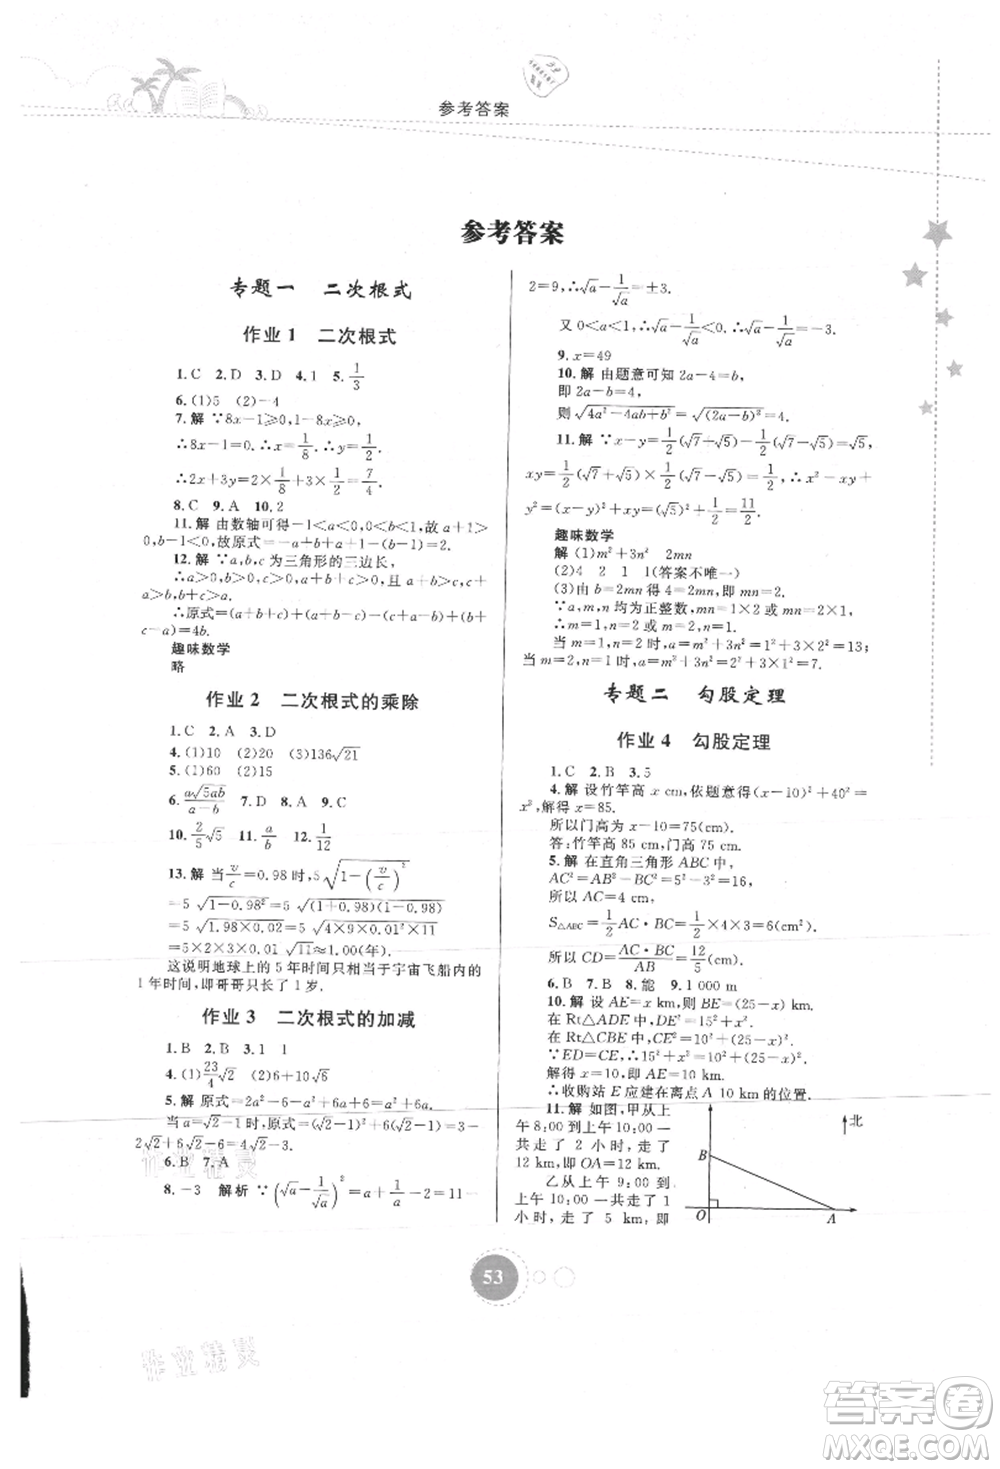 参考答案
参考答案
专题一 二次根式
作业1 二次根式
1.C 2.D 3.D 4.1 5.1/3
6.(1)5 (2)-4
7.解 ∵8x-1≥0,1-8x≥0,
∴8x-1=0,∴x=1/8.∴y=1/2.
∴2x+3y=2×1/8+3×1/2=7/4.
8.C 9.A 10.2
11.解 由数轴可得-1<a<0,0<b<1,故a+1>
0,b-1<0,故原式=-a-b.
12.解 ∵a,b,c为三角形的三边长,
∴a>0,b>0,c>0,且b+c>a,a+c>b,
b+c>a.
∴原式=(a+b+c)+(b+c-a)+(a+b-c)+(b+
c-a)=4b.
趣味数学
略
作业2 二次根式的乘除
1.C 2.A 3.D
4.(1)10 (2)20 (3)136√21
5.(1)60 (2)15
6.a√5ab/(a-b) 7.D 8.A 9.C
10.2/5√5 11.a/b 12.1/12
13.解 当v/c=0.98时,5√(1-(v/c)²)
=5√(1-0.98²)=5√((1+0.98)(1-0.98))
=5√(1.98×0.02)=5√(4×9×0.02²×11)
=5×2×3×0.02×√11≈1.00(年).
这说明地球上的5年时间只相当于宇宙飞船内的
1年时间,即哥哥只长了1岁.
作业3 二次根式的加减
1.B 2.B 3.1 1
4.(1)23/4√2 (2)6+10√5
5.解 原式=2a²-6-2a²+a²+6a=a²+6a.
当a=√2-1时,原式=(√2-1)²+6(√2-1)=3-
2√2+6√2-6=4√2-3.
6.B 7.A
8.-3 解析 ∵(√a-1/√a)²=a+1/a-2=11-
2=9,∴√a-1/√a=±3.
又0<a<1,∴√a-1/√a<0.∴√a-1/√a=-3.
9.x=49
10.解 由题意可知2a-4=b,
即2a-b=4,
则√(4a²-4ab+b²)=√((2a-b)²)=4.
11.解 ∵x-y=1/2(√7+√5)-1/2(√7-√5)=√5,
xy=1/2(√7+√5)×1/2(√7-√5)=1/2,∴x²-xy+
y²=(x-y)²+xy=(√5)²+1/2=11/2.
趣味数学
解 (1)m²+3n² 2mn
(2)4 2 1 1(答案不唯一)
(3)由b=2mn得4=2mn,即mn=2.
∵a,m,n均为正整数,∴mn=1×2或mn=2×1.
∴m=1,n=2或m=2,n=1.
当m=1,n=2时,a=m²+3n²=1²+3×2²=13;
当m=2,n=1时,a=m²+3n²=2²+3×1²=7.
专题二 勾股定理
作业4 勾股定理
1.C 2.B 3.5
4.解 设竹竿高x cm,依题意得(x-10)²+40²=
x²,解得x=85.
所以门高为x-10=75(cm).
答:竹竿高85 cm,门高75 cm.
5.解 在直角三角形ABC中,
AC²=AB²-BC²=5²-3²=16,
所以AC=4 cm.
S△ABC=1/2AC·BC=1/2×4×3=6(cm²).
所以CD=AC·BC/AB=12/5(cm).
6.B 7.B 8.能 9.1 000 m
10.解 设AE=x km,则BE=(25-x) km.
在Rt△ADE中,DE²=15²+x²,
在Rt△CBE中,CE²=10²+(25-x)².
∵ED=CE,∴15²+x²=10²+(25-x)².
解得x=10,即AE=10 km.
∴收购站E应建在离点A 10 km的位置.
11.解 如图,甲从上
午8:00到上午10:00
一共走了2小时,走了
12 km,即OA=12 km.
乙从上午9:00到
上午10:00一共走了1
小时,走了5 km,即
北
B
O
A
53
作业精灵
作业精灵
答案圈
MXQE.COM